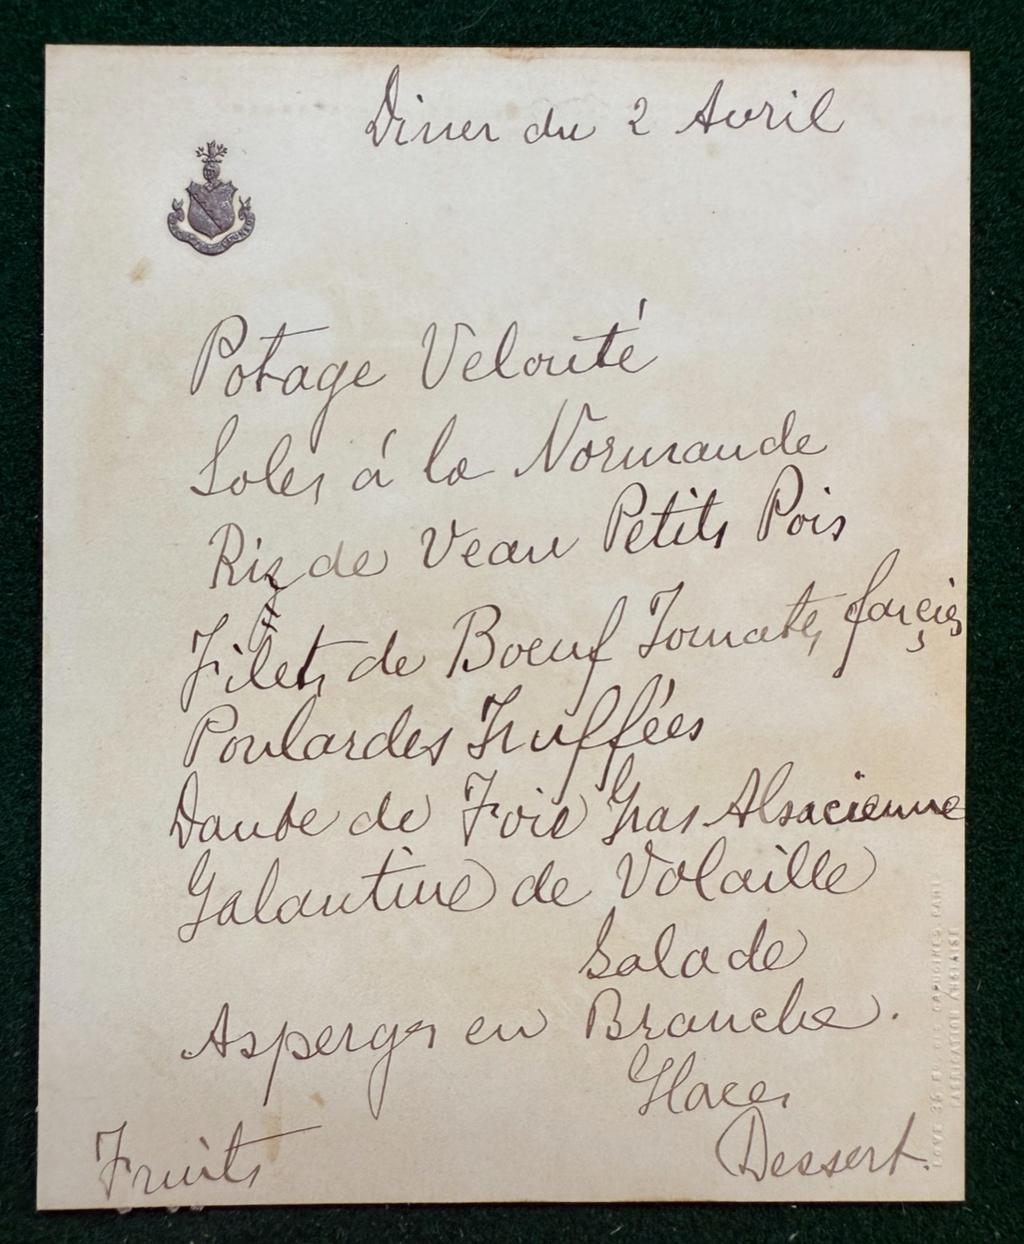 Diner du 2 Avril
Potage Velouté
Soles á la Normande
Riz de Veau Petits Pois
Filets de Boeuf Tomates farçies
Poulardes Truffées
Daube de Foie Gras Alsacienne
Galantine de Volaille
Salade
Asperges en Branche.
Glaces
Fruits
Dessert.
LOVE 35 CAPUCINES PARIS
FABRICATION ANGLAISE